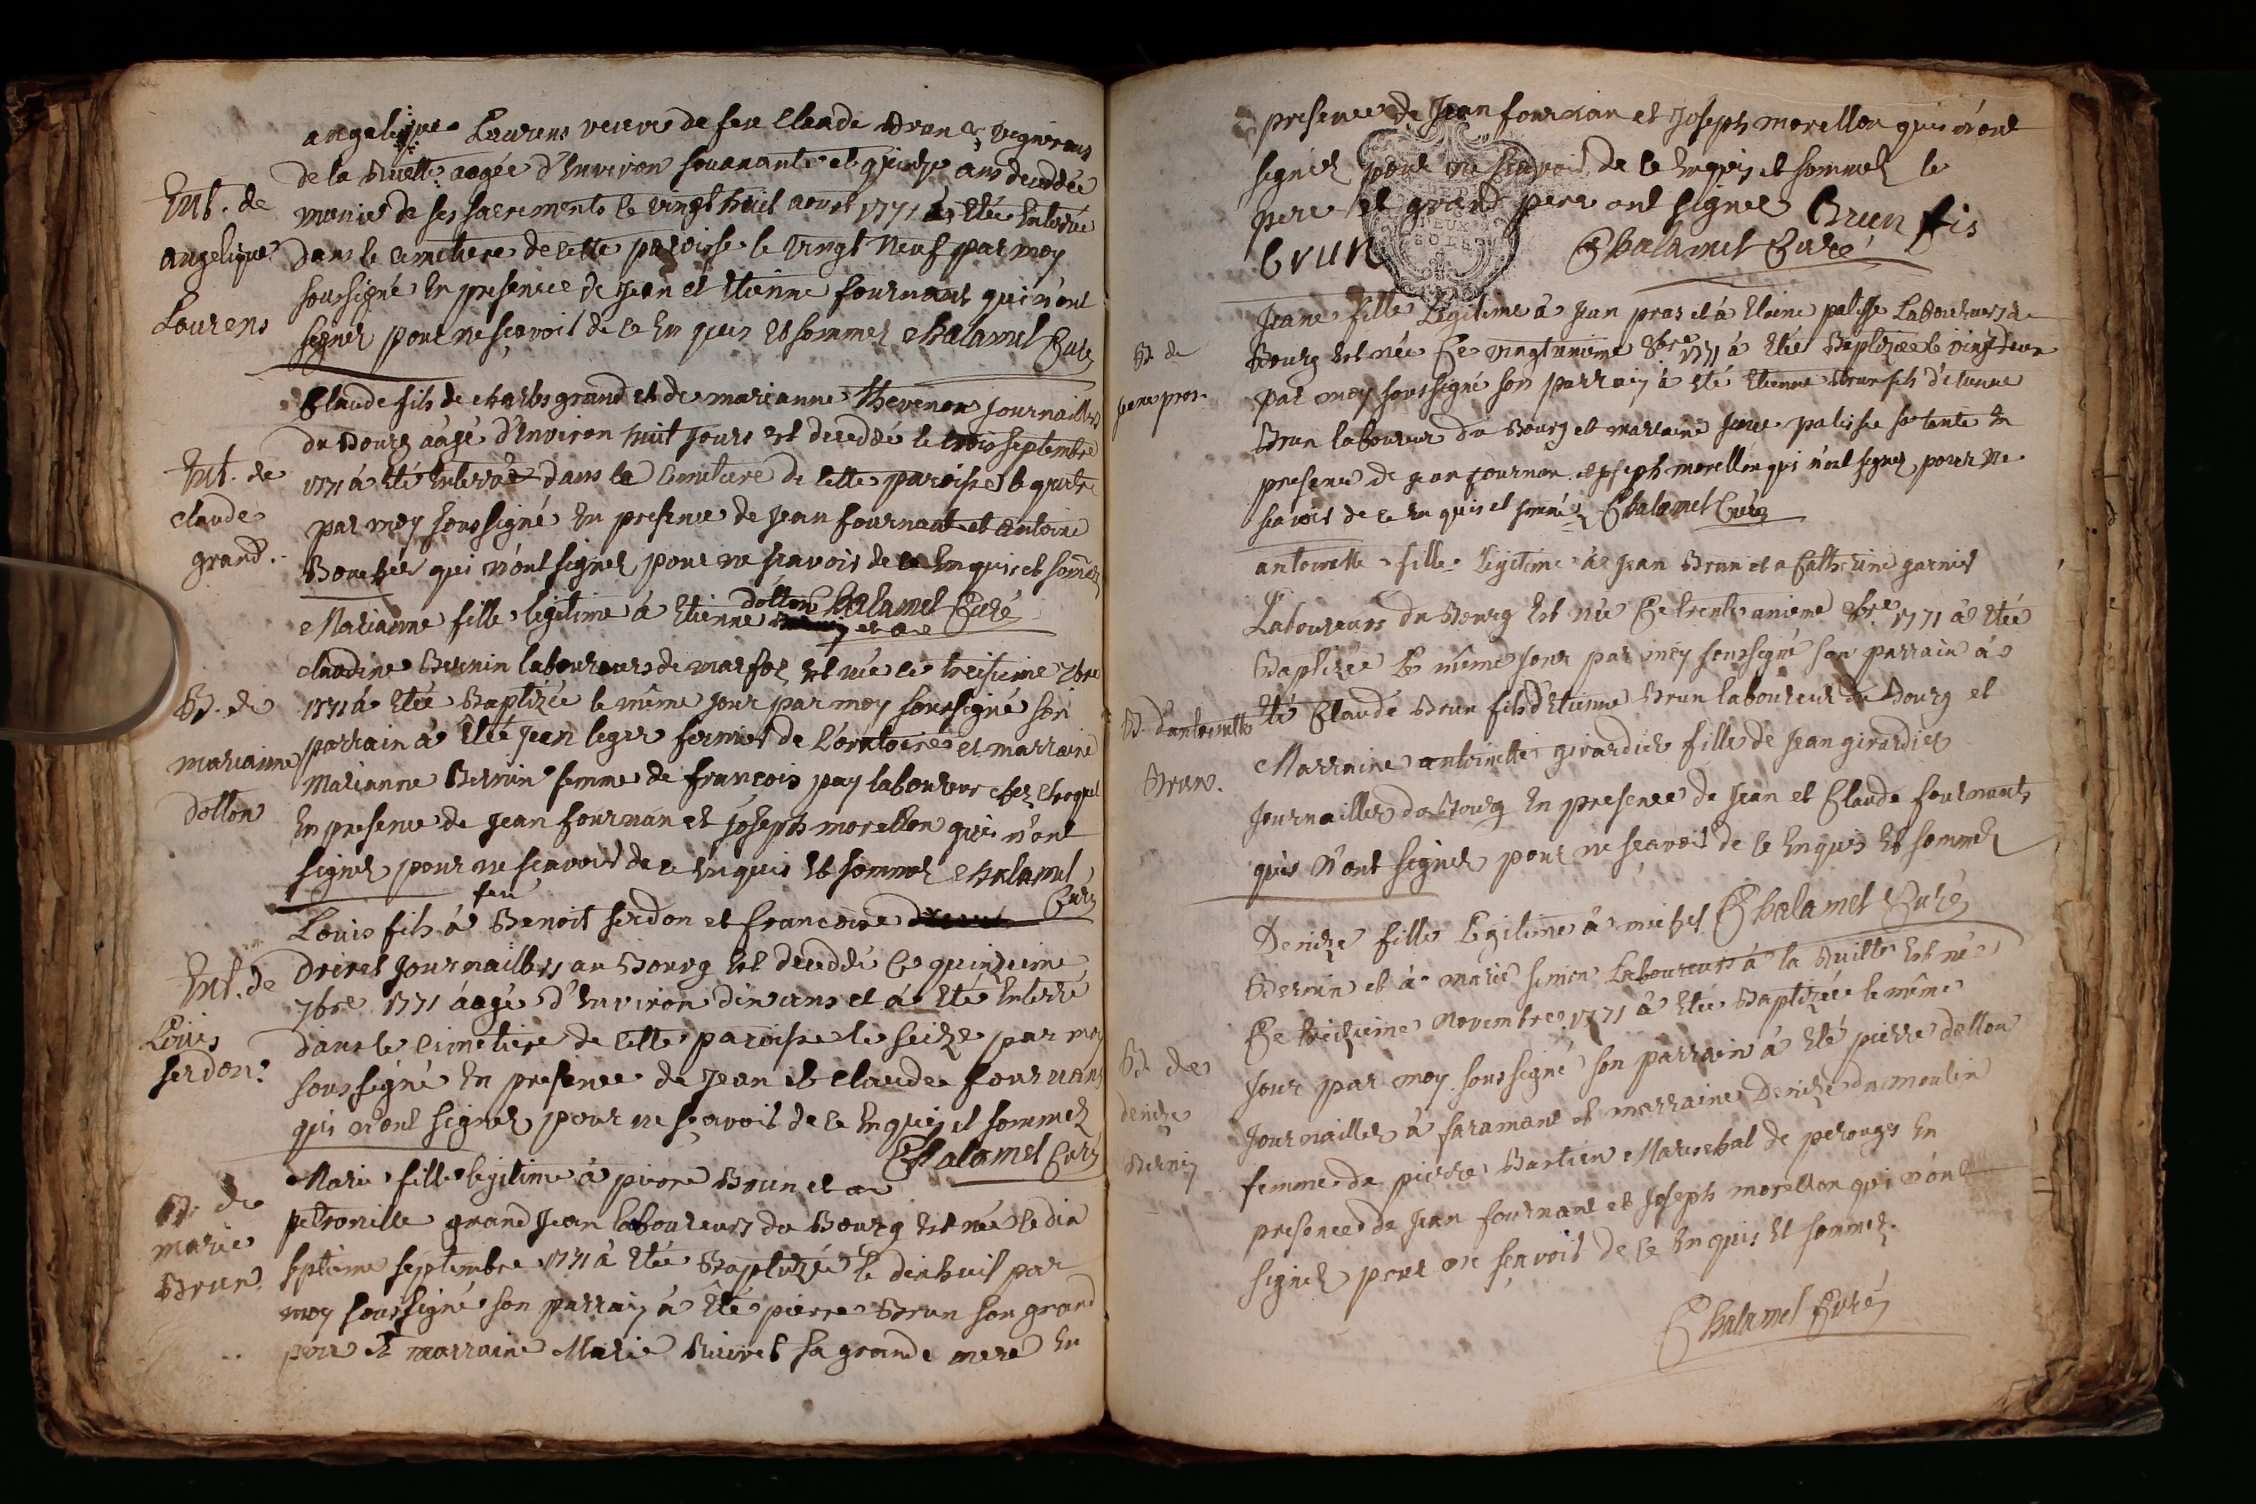 angelique Laurens veuve de feu Claude Brun vigneron
de la Ruette aagée d'Environ souaxante et quinze ans decedée
munie de ses sacrements le vingt huit aoust 1771 a Etée Enterrée
dans le cimetiere de cette paroisse le vingt Neuf par moy
soussigné En presence de Jean et Etienne fournant qui n'ont
signés pour ne sçavoir de ce En quis et sommez Chalamel Curé
Ent. de
angelique
Laurens
Claude fils de charles grand et de marianne thevenon Journaillers
du Bourg âagé d'Environ huit Jours est decedé le trois septembre
1771 á Eté Enterré dans le Cimetiere de cette paroisse le quatre
par moy soussigné En presence de Jean fournant et antoine
Bouchet qui n'ont signez pour ne sçavoir de ce Enquis et sommez
Chalamel Curé
Ent. de
claude
grand.
Marianne fille legitime á Etienne dotton et a
claudine Bernin laboureurs de marfoz est née le treisieme 7bre
1771 á Etée Baptizée le même jour par moy soussigné son
parrain á Eté Jean leger fermier de L'oratoire et marraine
Marianne Bernin femme de françois pay laboureur chez
En presence de Jean fournan et joseph morellon qui n'ont
signez pour ne sçavoir de ce Enquis et sommez Chalamel
Curé
B. de
marianne
dotton
Louis fils á feu Benoit serdon et francoise
Drivet Journaillers au Bourg est decedé Ce quinzieme
7bre 1771 áagé d'Environ dix ans et á Eté Enterré
dans le cimetiere de cette paroisse le seize par moy
soussigné En presence de Jean et claude fournans
qui n'ont signez pour ne sçavoir de ce Enquis et sommez
Chalamel Curé
Ent. de
Louis
serdon.
Marie fille legitime á pierre Brun et a
petronille grand Jean laboureurs du Bourg est née le dix
septieme septembre 1771 á Etée Baptizée le dixhuit par
moy soussigné son parrain á Eté pierre Brun son grand
pere et marraine Marie Rivet sa grande mere En
B. de
marie
Brun
presence de Jean fournan et Joseph morellon qui n'ont
signez pour ne sçavoir de ce Enquis et sommez le
pere et grand pere ont signes Brun fis
brun Chalamel Curé
Jeane fille Legitime á Jean pras et á Claine palisse Laboureurs du
Bourg est née Ce vingtunieme 8bre 1771 á Etée Baptizée le vingtdeux
par moy soussigné son parrain á eté Etienne Brun fils d'etienne
Brun laboureur du Bourg et marraine Jeane palisse sa tante En
presence de jean fournan et joseph morellon qui n'ont signez pour ne
sçavoir de ce Enquis et sommés Chalamel Curé
B. de
jeane pras.
antoinette fille legitime á Jean Brun et a Catherine garnier
Laboureurs du Bourg est née Ce trente unieme 8bre 1771 á Etée
Baptizée le même Jour par moy soussigné son parrain á
Eté Claude Brun fils d'Etienne Brun laboureur du Bourg et
Marraine antoinette girardier fille de Jean girardier
Journaillier du Bourg En presence de Jean et Claude fournants
qui n'ont signez pour ne sçavoir de ce Enquis et sommez
Chalamel Curé
B. d'antoinette
Brun.
Denize fille Legitime á michel
Bernin et á marie simon Laboureurs á la Ruitte est née
Ce treizieme Novembre 1771 á Etée Baptizée le même
Jour par moy soussigné son parrain á Eté pierre dotton
Journaillier á faramant et marraine Denize dumoulin
femme de pierre Bastien Marechal de perouges En
presence de Jean fournant et Joseph morellon qui n'ont
signez pour ne sçavoir de ce Enquis et sommez.
Chalamel Curé
B. de
denize
Bernin